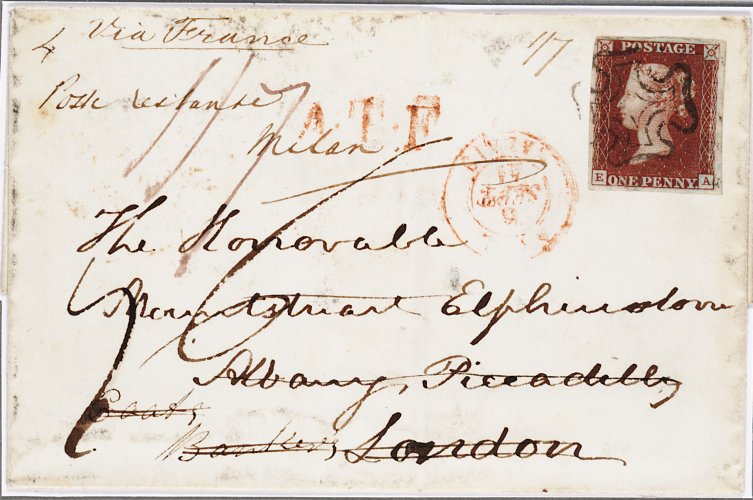 4 Via France
1/7
POSTAGE
ONE PENNY
E A
Poste restante
A.T.F
Milan
SEPT
The Honorable
Mountstuart Elphinstone
Albany, Piccadilly
Coats,
Bankers, London